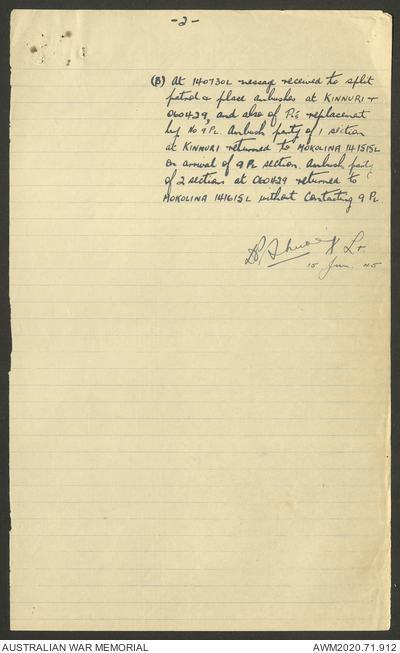 -2-
(B) At 140730L message received to split
patrol & place ambushes at KINNURI +
060429, and also of Ptl replacement
by No 9 Pl. Ambush party of 1 section
at KINNURI returned to MOKOLINA 141515L
on arrival of 9 Pl section. Ambush party
of 2 sections at 060429 returned to
MOKOLINA 141615L without contacting 9 Pl.
Lt.
15 Jun. 45
AUSTRALIAN WAR MEMORIAL
AWM2020.71.912